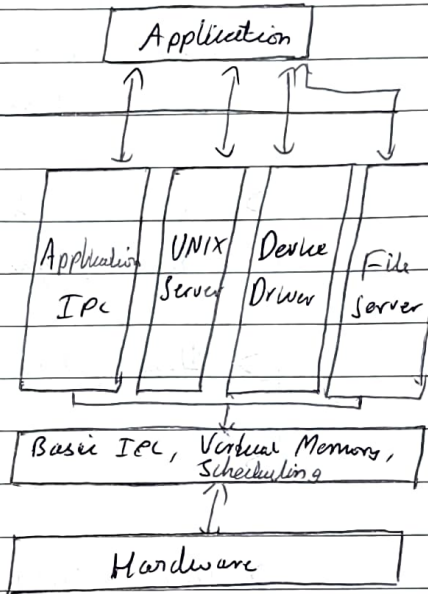 Application
Application
IPC
UNIX
Server
Device
Driver
File
Server
Basic IPC, Virtual Memory,
Scheduling
Hardware